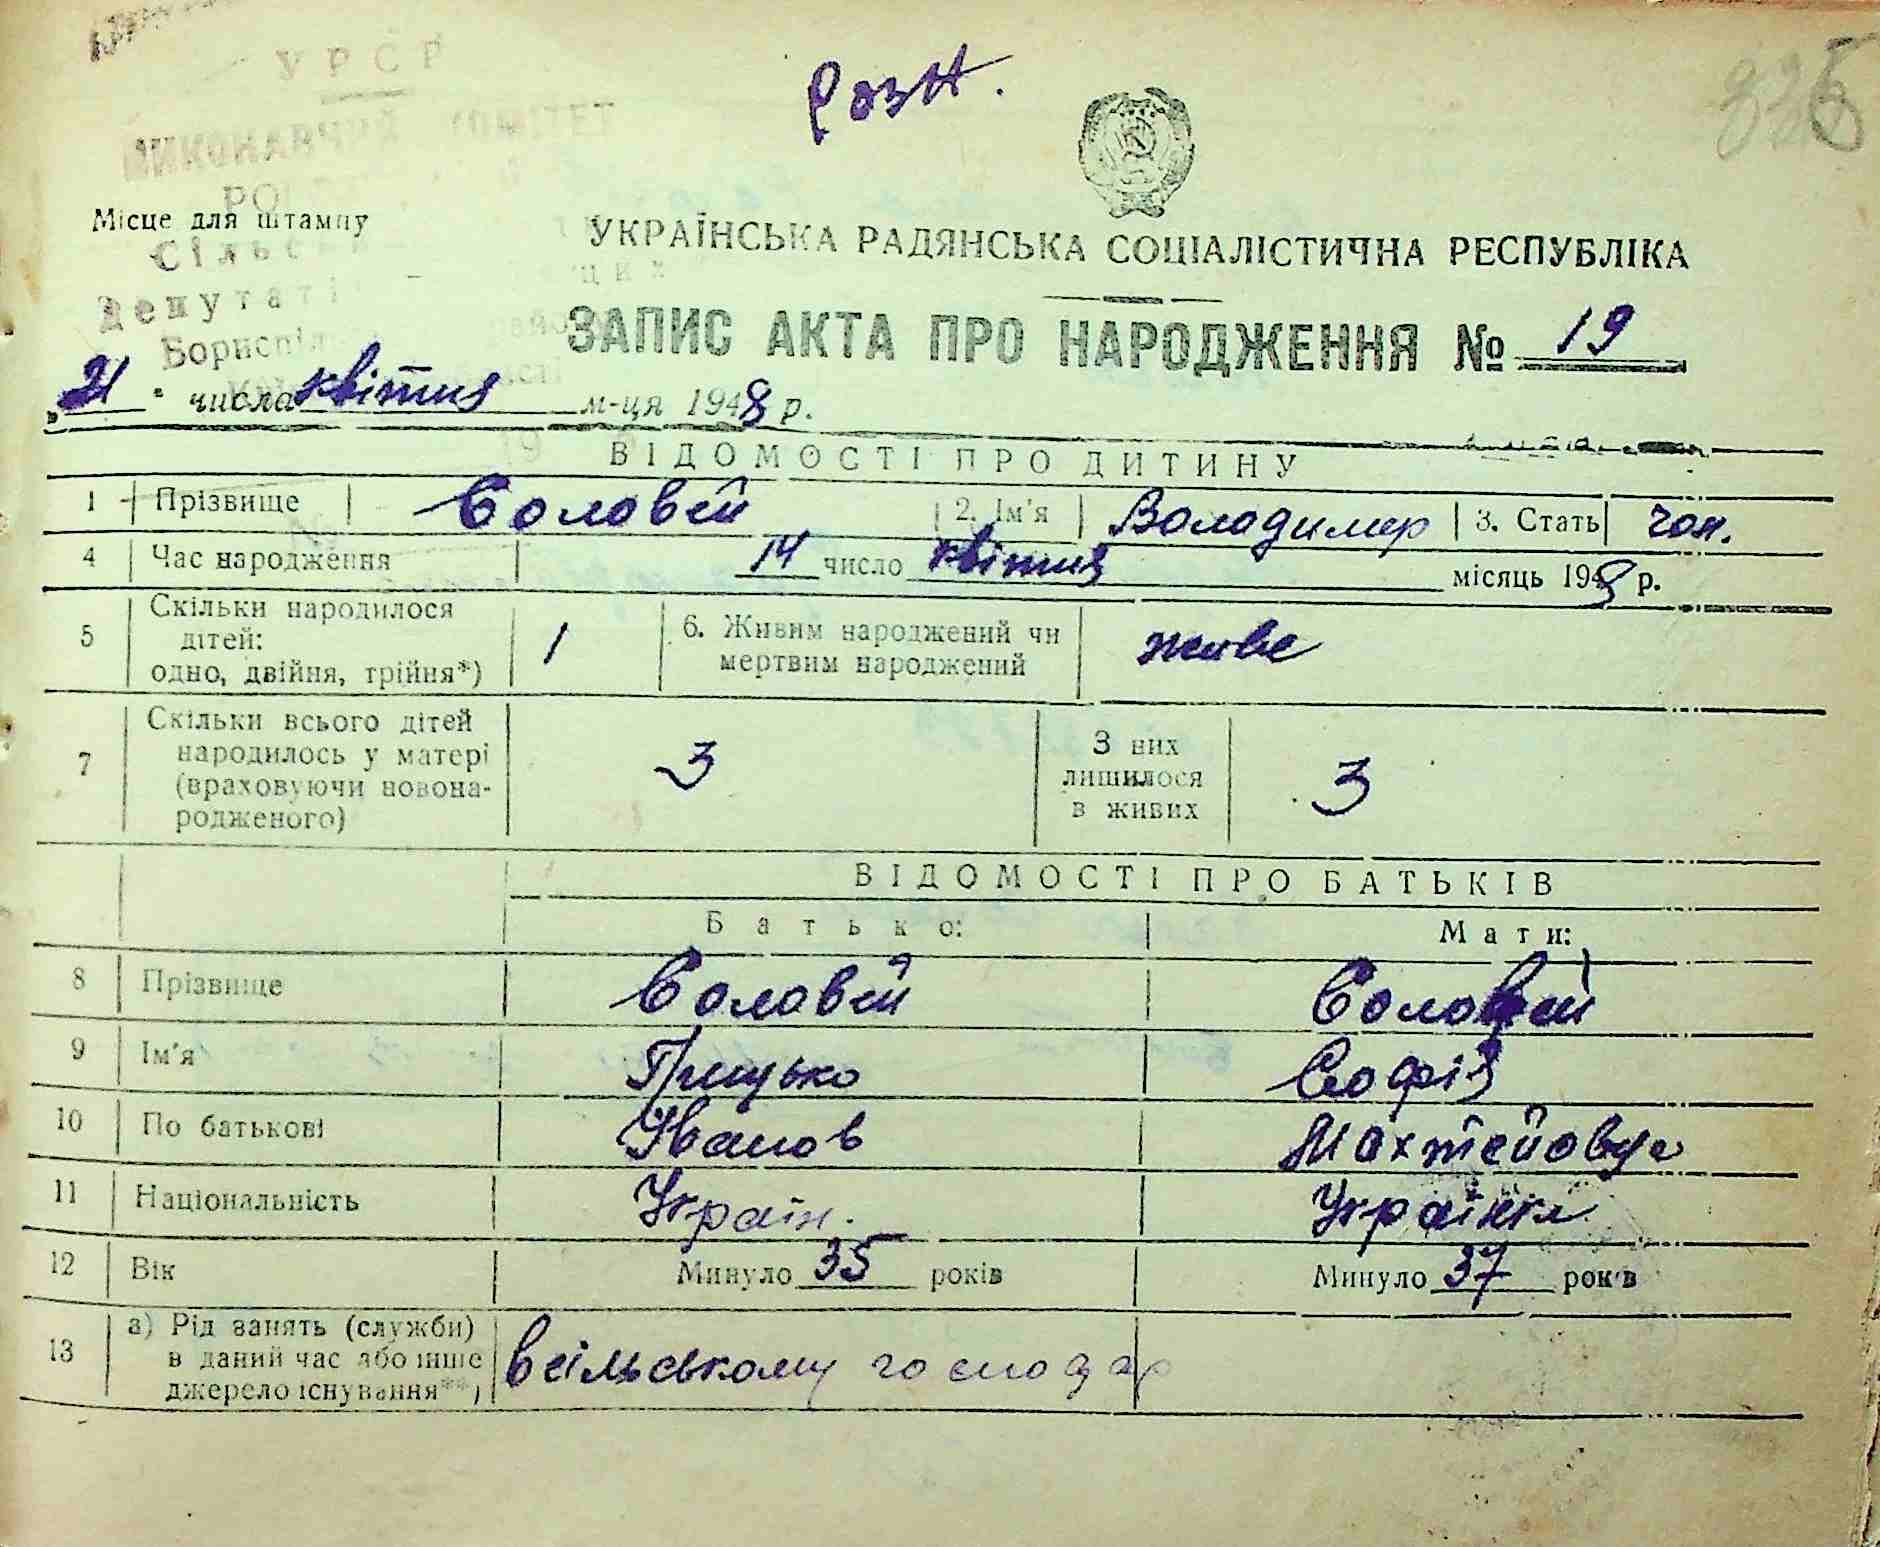 УРСР
Розн.
ВИКОНАВЧИЙ КОМІТЕТ
Місце для штампу
УКРАЇНСЬКА РАДЯНСЬКА СОЦІАЛІСТИЧНА РЕСПУБЛІКА
Депутатів
ЗАПИС АКТА ПРО НАРОДЖЕННЯ № 19
„21" числа квітня м-ця 1948 р.
ВІДОМОСТІ ПРО ДИТИНУ
1 Прізвище Соловей 2. Ім'я Володимер 3. Стать чол.
4 Час народження 14 число квітня місяць 1948 р.
5 Скільки народилося дітей: одно, двійня, трійня*) 1 6. Живим народжений чи мертвим народжений живе
7 Скільки всього дітей народилось у матері (враховуючи новонародженого) 3 З них лишилося в живих 3
ВІДОМОСТІ ПРО БАТЬКІВ
Батько: Мати:
8 Прізвище Соловей Соловей
9 Ім'я Грицько Софія
10 По батькові Іванов
11 Національність Україн. Українка
12 Вік Минуло 35 років Минуло 37 років
13 а) Рід занять (служби) в даний час або інше джерело існування**) в сільському господар